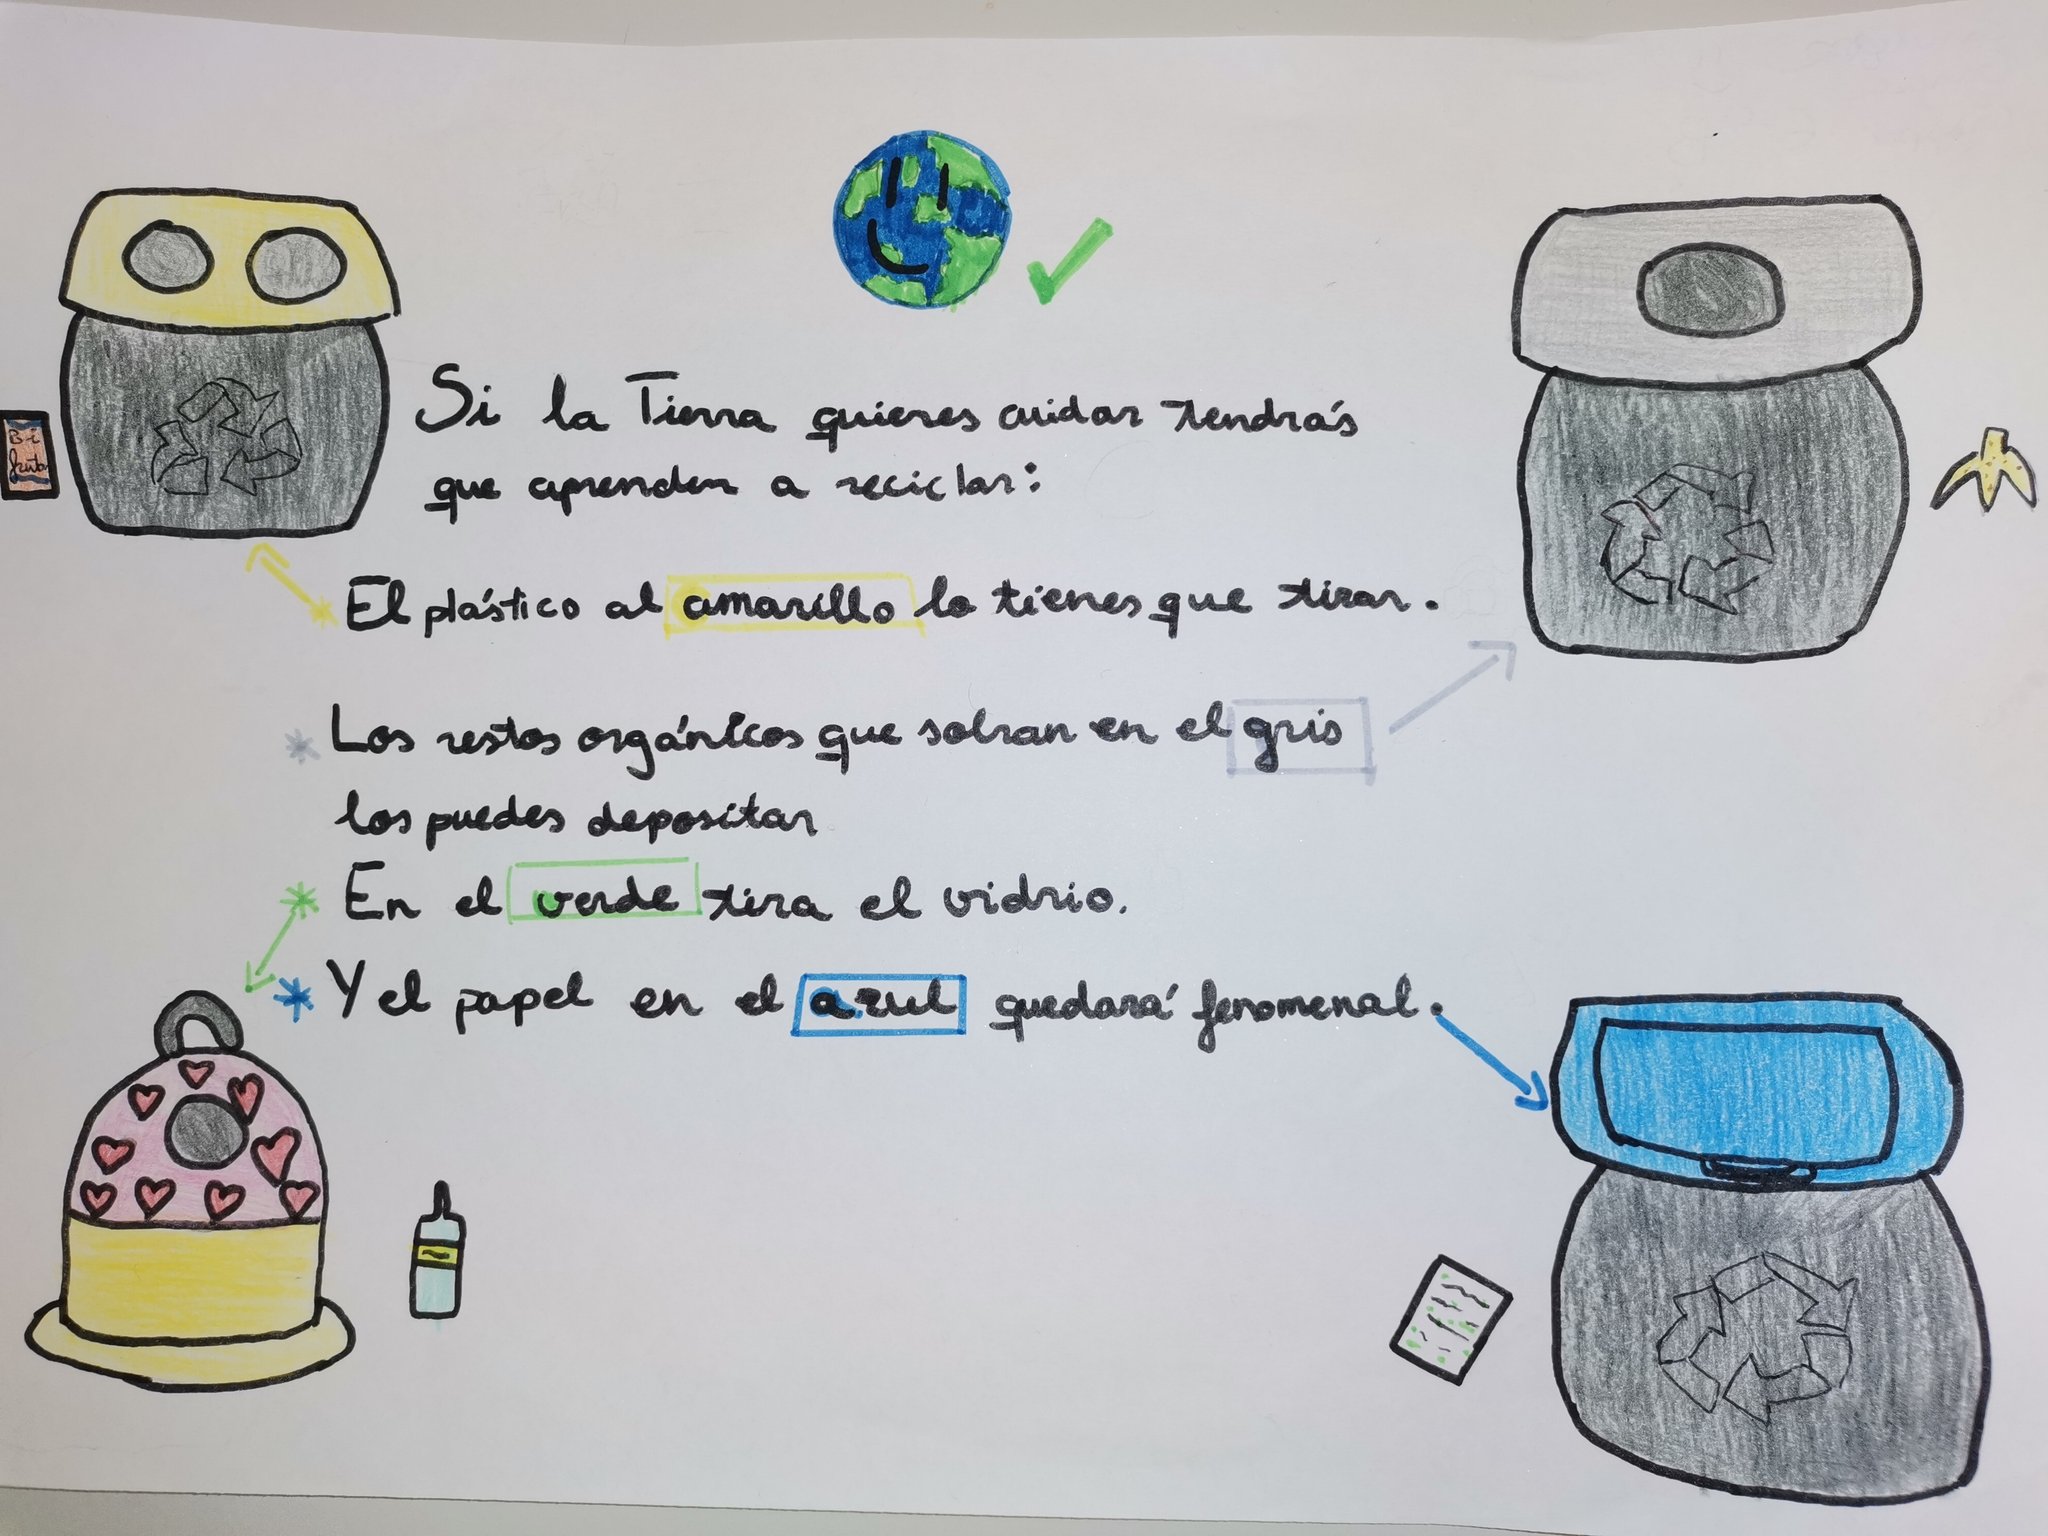 Si la Tierra quieres cuidar tendrás
que aprender a reciclar:
El plástico al amarillo lo tienes que tirar.
Los restos orgánicos que sobran en el gris
los puedes depositar
En el verde tira el vidrio.
Y el papel en el azul quedará fenomenal.
Bi
frutas